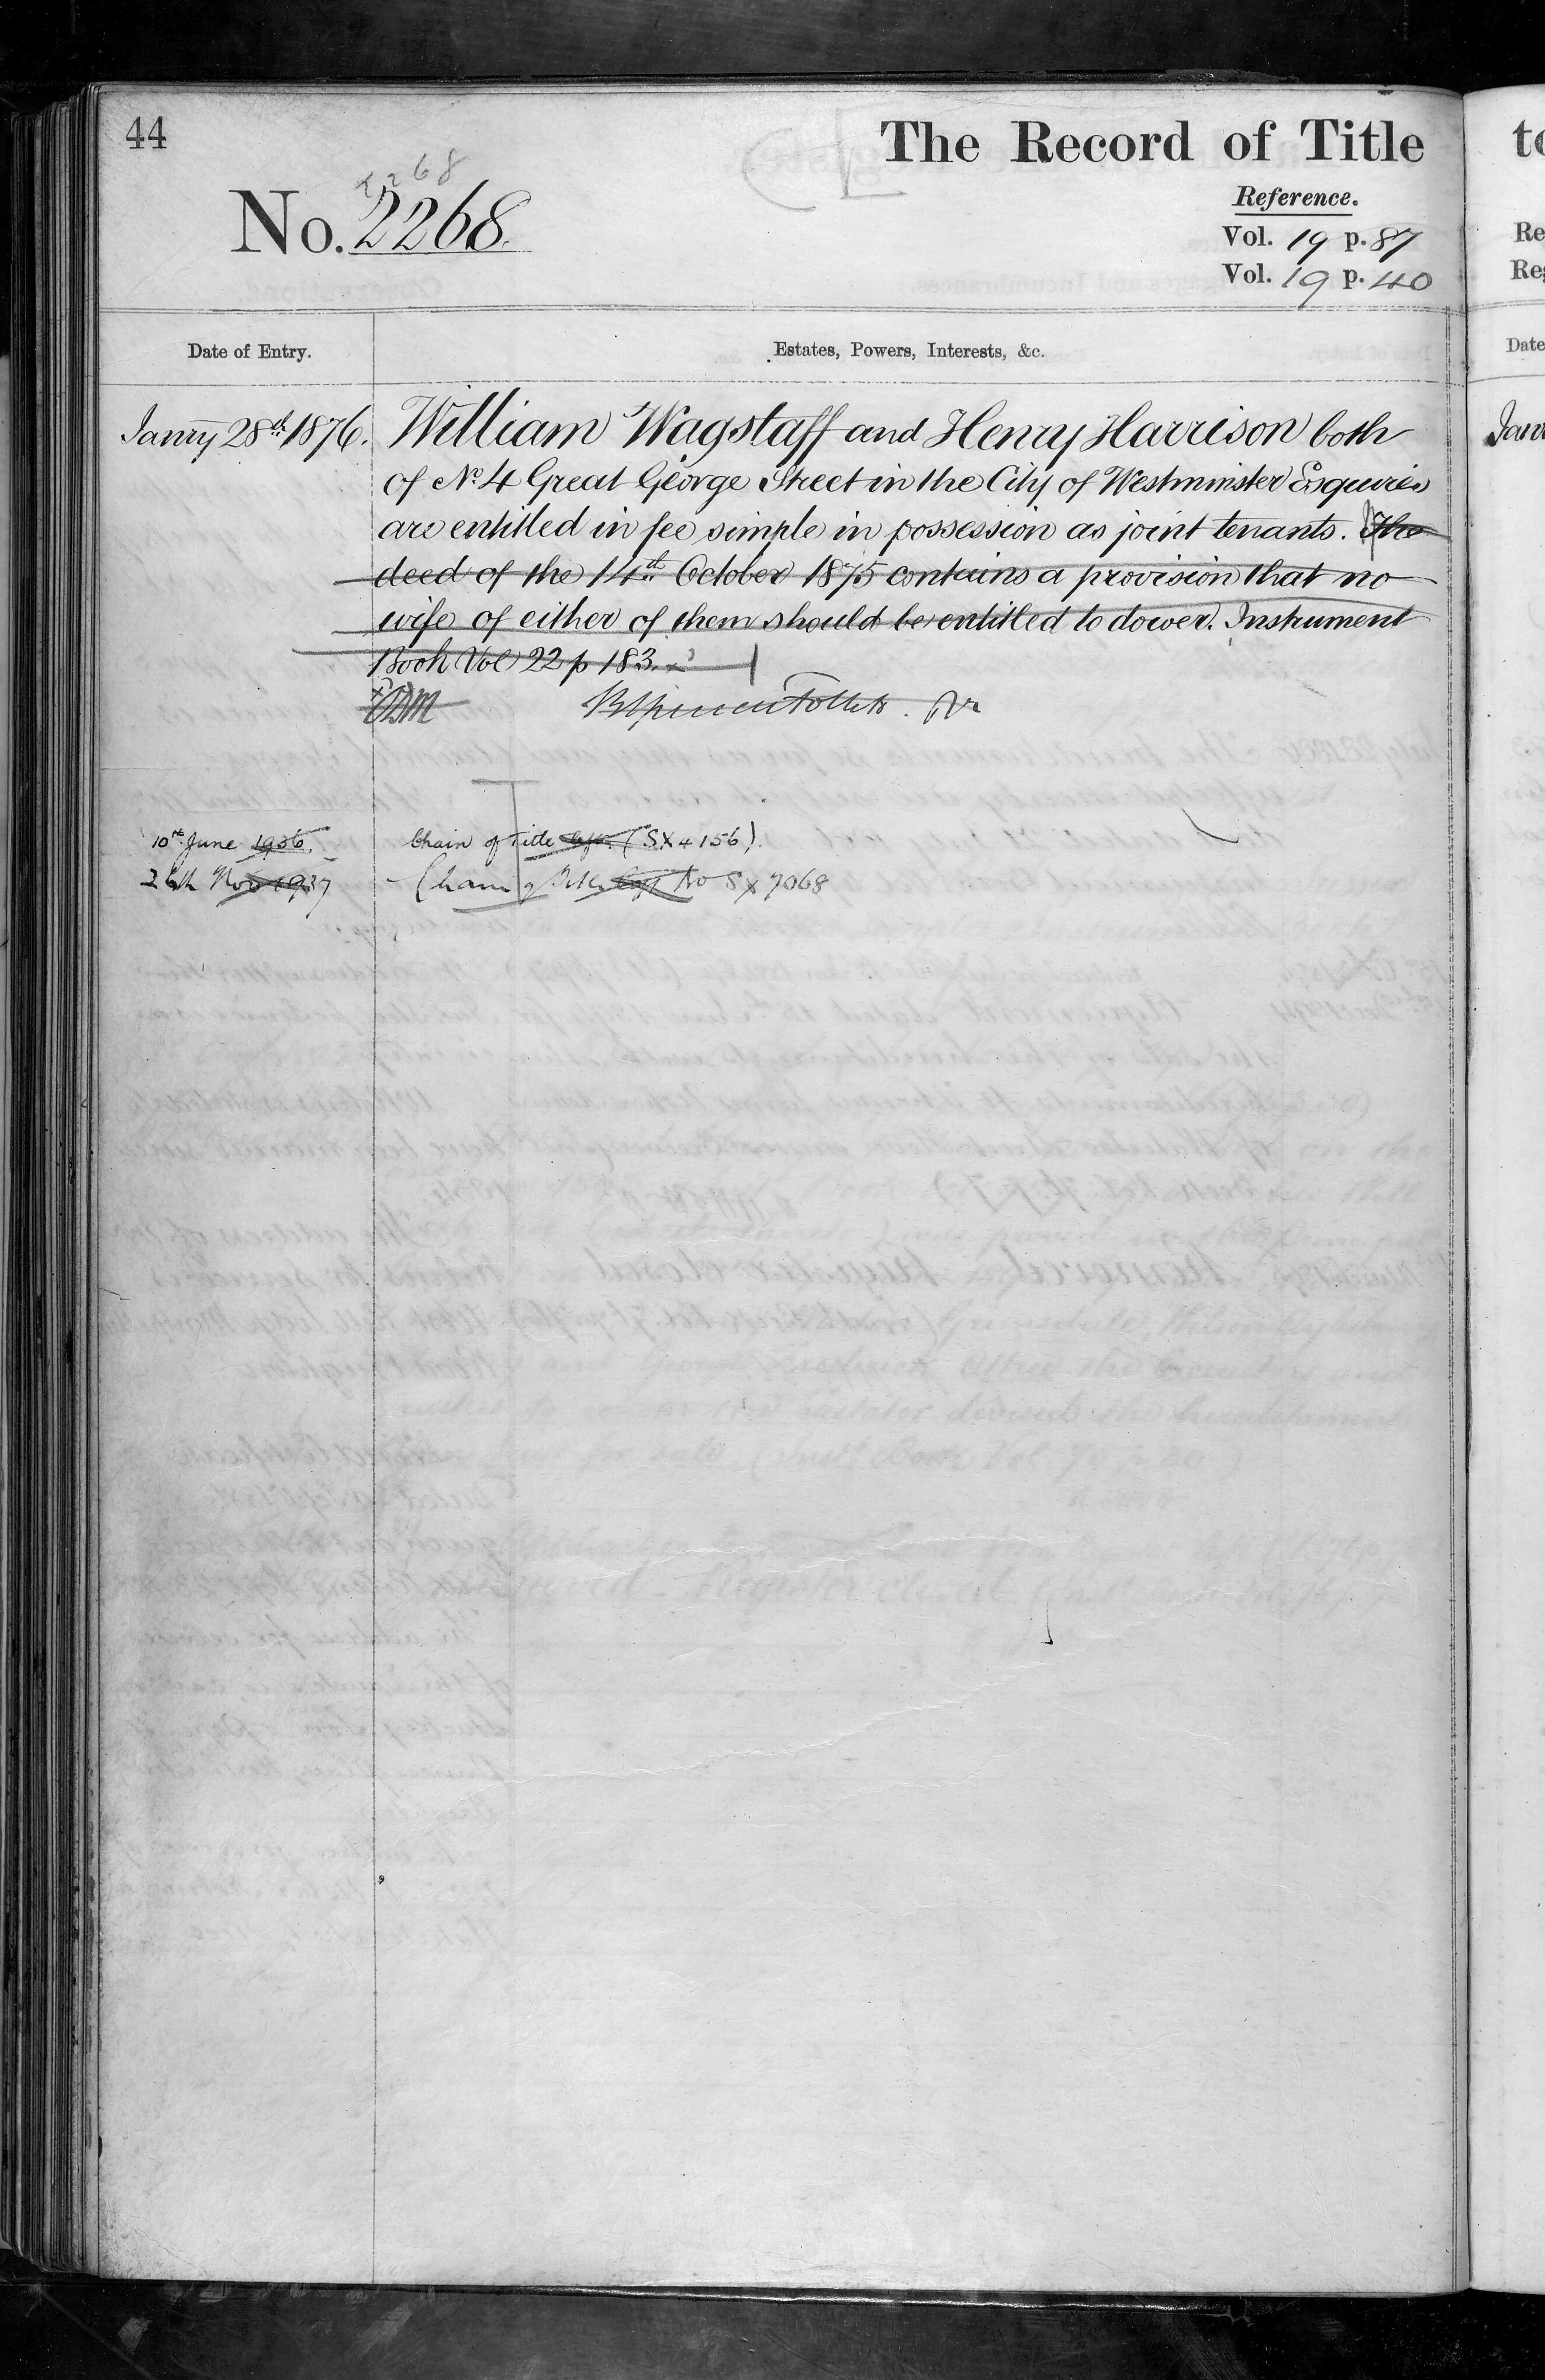 44
The Record of Title
2268
No. 2268.
Reference.
Vol. 19 p. 87
Vol. 19 p. 40
Date of Entry.
Estates, Powers, Interests, &c.
Janry 28th 1876.
William Wagstaff and Henry Harrison both
of No. 4 Great George Street in the City of Westminster Esquires
are entitled in fee simple in possession as joint tenants. The
deed of the 14th October 1875 contains a provision that no
wife of either of them should be entitled to dower. Instrument
Book Vol 22 p 183.
10th June 1936.
Chain of Title (SX 4156).
26th Nov 1937
Chain of Title No SX 7068
to
Re
Reg
Date
Janr